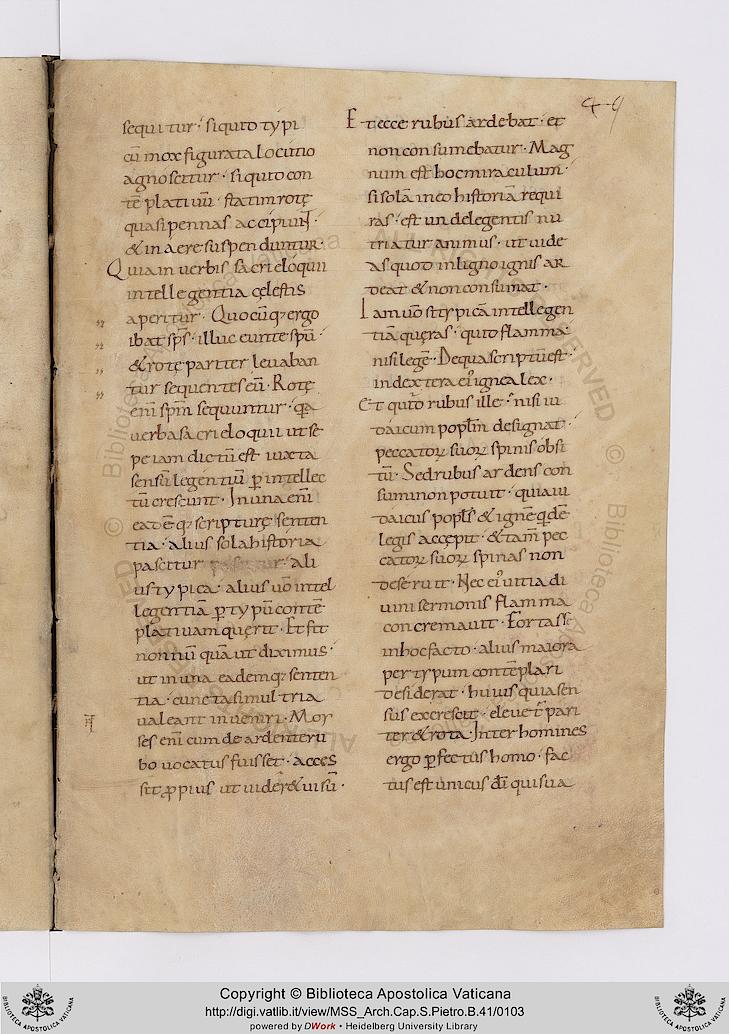 sequitur· si quid typi
cū mox figurata locutio
agnoscitur· si quid con
tēplatiuū· statim rotę
quasi pennas accipiunt·
& in aere suspenduntur·
Quia in uerbis sacri eloquii
intellegentia cęlestis
aperitur· Quocūq; ergo
ibat sps̄· illuc eunte spū·
& rotę pariter leuaban
tur sequentes eū· Rotę
enī spm̄ sequuntur· qa
uerba sacri eloquii ut sę
pe iam dictū est iuxta
sensū legentiū ꝑ intellec
tū crescunt· In una enī
eadēq; scripturę senten
tia· alius sola historia
pascitur ali
us typica· alius uō intel
legentiā ꝑ typū contē
platiuam quęrit· Et fit
non nū quā ut diximus·
ut in una eademq; senten
tia· cuncta simul tria
ualeant inueniri· Moy
ses enī cum de ardenti ru
bo uocatus fuisset· acces
sit ꝓpius ut uider& uisū·
Et ecce rubus ardebat· et
non consumebatur· Mag
num est hoc miraculum·
si solā in eo historiā requi
ras· est unde legentis nu
triatur animus· ut uide
as quod in ligno ignis ar
deat & non consumat·
Iam uō si typicā intellegen
tiā quęras· quid flamma·
nisi legē· De qua scriptū est·
in dextera ei' ignea lex·
Et quid rubus ille· nisi iu
daicum poplm̄ designat·
peccatoꝝ suoꝝ spinis obsi
tū· Sed rubus ardens con
sumi non potuit· quia iu
daicus popls̄ & ignē qdē
legis accepit· & tam̄ pec
catoꝝ suoꝝ spinas non
deseruit· Nec ei' uitia di
uini sermonis flamma
concremauit· Fortasse
in hoc facto· alius maiora
per typum contēplari
desiderat· huius quia sen
sus excrescit· eleuet̄ pari
ter & rota· Inter homines
ergo ꝑfectus homo· fac
tus est unicus dī qui sua
Copyright © Biblioteca Apostolica Vaticana
http://digi.vatlib.it/view/MSS_Arch.Cap.S.Pietro.B.41/0103
powered by DWork • Heidelberg University Library